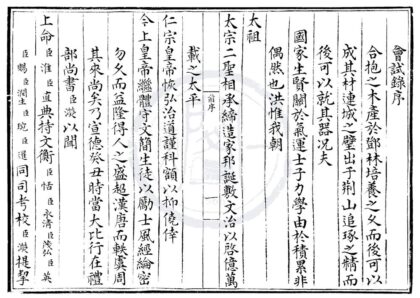 會試錄序
合抱之木產於鄧林培養之久而後可以
成其材連城之璧出于荆山追琢之精而
後可以就其器況夫
國家生賢關於氣運士子力學由於積累非
偶然也洪惟我朝
太祖
太宗二聖相承締造家邦誕敷文治以啓億萬
前序
一
載之太平
仁宗皇帝恢弘治道謹科額以抑僥倖
今上皇帝繼體守文簡生徒以勵士風經綸密
勿久而益隆得人之盛超漢唐而軼虞周
其來尚矣乃宣德癸丑時當大比行在禮
部尚書臣濙以聞
上命臣淮臣直典持文衡臣恬臣永清臣茂弘臣英
臣賜臣潤生臣琬臣選同司考校臣濙提挈